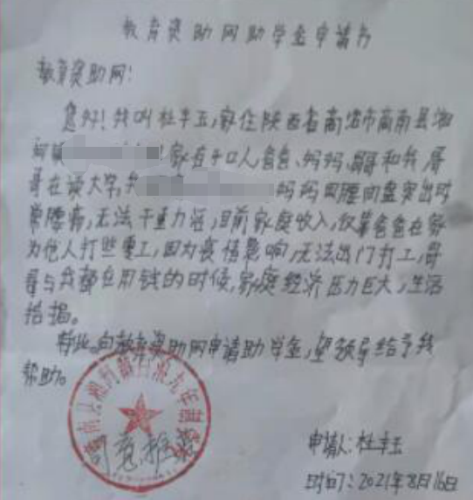 教育资助网助学金申请书
教育资助网:
您好!我叫杜辛玉,家住陕西省商洛市商南县湘
河镇 家有干口人,爸爸、妈妈、哥哥和我,哥
哥在读大学,我 妈妈因腰间盘突出时
常腰痛,无法干重力活,目前家庭收入,仅靠爸爸在家
为他人打些零工,因为疫情影响,无法出门打工,哥
哥与我都在用钱的时候,家庭经济压力巨大,生活
拮据。
特此向教育资助网申请助学金,望领导给予我
帮助。
同意推荐
申请人:杜辛玉
时间:2021年8月16日